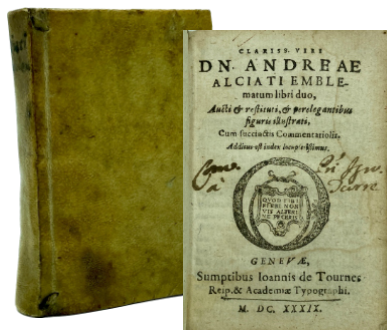 CLARISS. VIRI
DN. ANDREAE
ALCIATI EMBLE-
matum libri duo,
Aucti & restituti, & perelegantibus
figuris illustrati,
Cum succinctis Commentariolis.
Additus est index locupletissimus.
QUOD TIBI
FIERI NON
VIS ALTERI
NE FECERIS
GENEVÆ,
Sumptibus Ioannis de Tournes
Reip. & Academiæ Typographi.
M. DC. XXXIX.